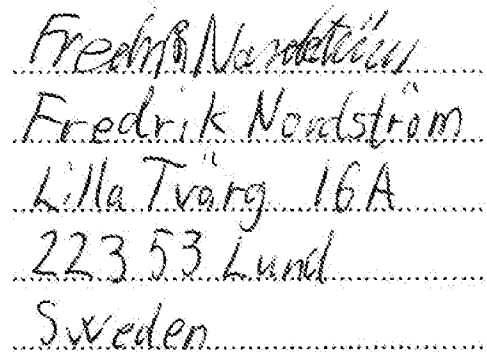 Fredrik Nordström
Fredrik Nordström
Lilla Tvärg 16A
223 53 Lund
Sweden